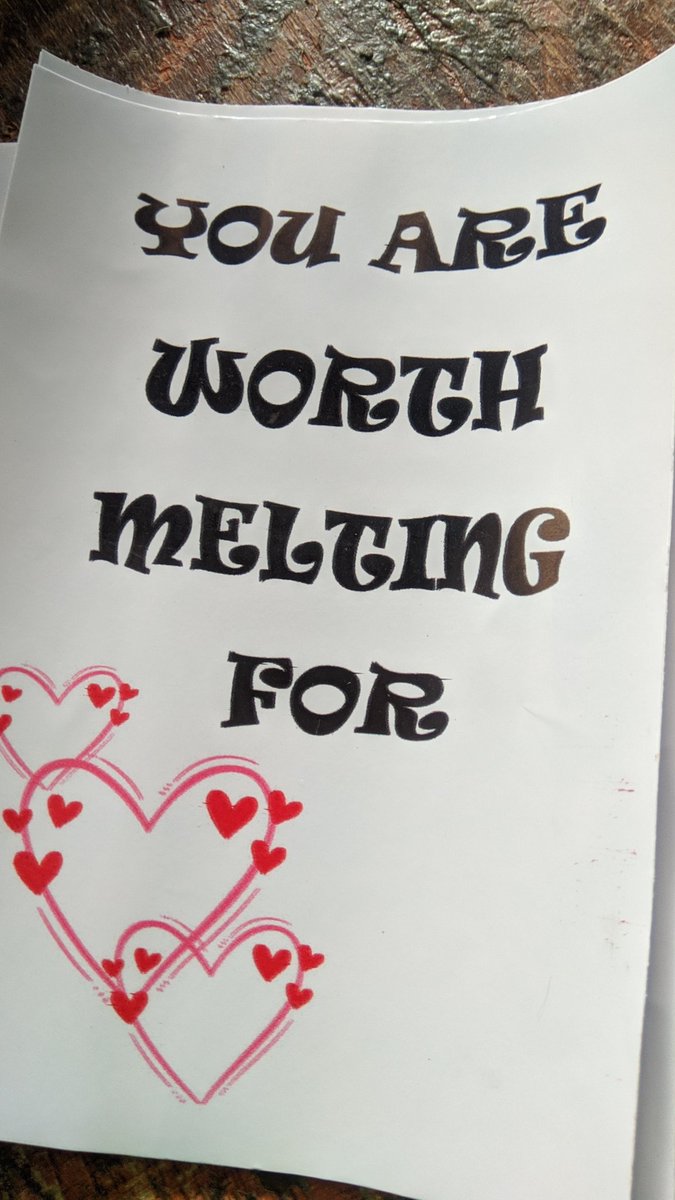 YOU ARE
WORTH
MELTING
FOR